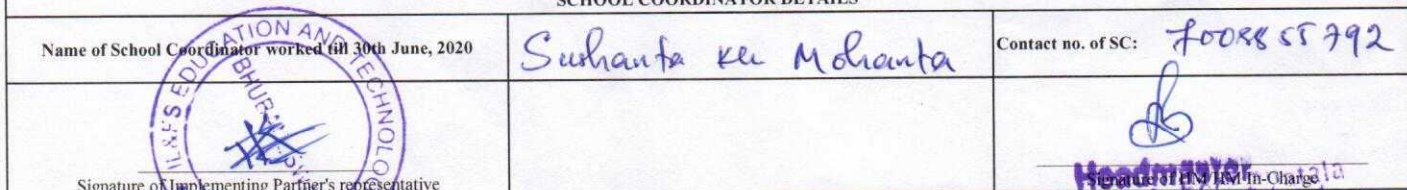 SCHOOL COORDINATOR DETAILS
Name of School Coordinator worked till 30th June, 2020
Sushanta Ku Mohanta
Contact no. of SC: 7008855792
IL&FS EDUCATION AND TECHNOLO
BHU
Signature of Implementing Partner's representative
Headmaster
Signature of HM/HM In-Charge